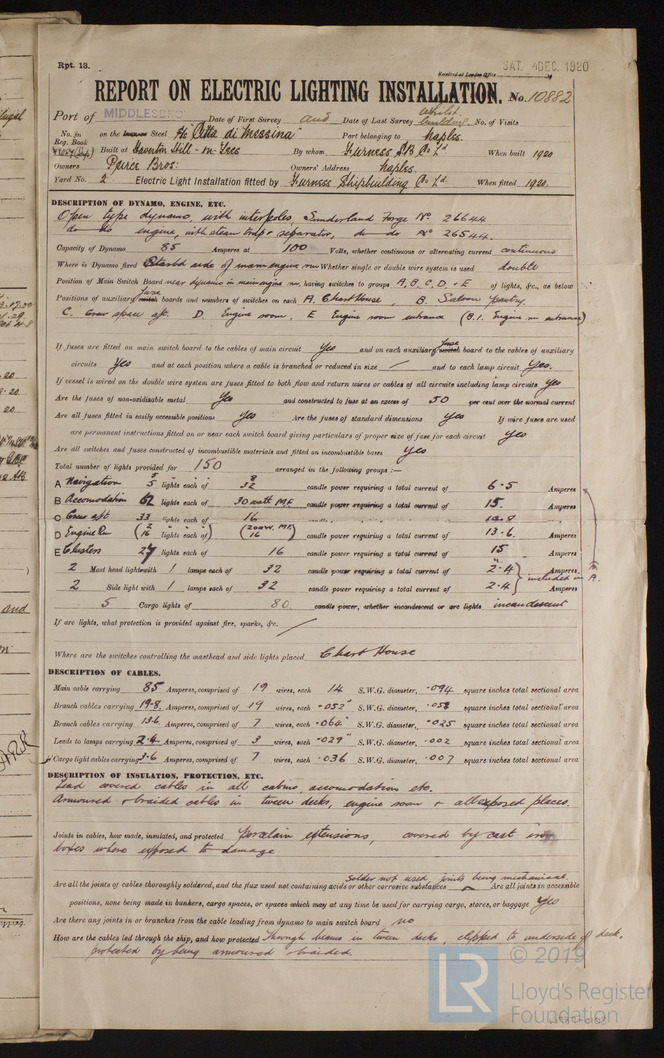 Rpt. 13.
SAT. 4 DEC. 1920
Received at London Office
REPORT ON ELECTRIC LIGHTING INSTALLATION. No. 10882
Port of MIDDLESBRO Date of First Survey and Date of Last Survey whilst building No. of Visits
No. in Reg. Book on the Iron or Steel "Citta di Messina" Port belonging to Naples.
Built at Haverton Hill-on-Tees By whom Furness S.B. Co Ld When built 1920
Owners Peirce Bros: Owners' Address Naples.
Yard No. 2 Electric Light Installation fitted by Furness Shipbuilding Co Ld. When fitted 1920.
DESCRIPTION OF DYNAMO, ENGINE, ETC.
Open type dynamo, with interpoles, Sunderland Forge No 26644
do do engine, with steam trap & separator, do do No 26544.
Capacity of Dynamo 85 Amperes at 100 Volts, whether continuous or alternating current continuous
Where is Dynamo fixed Starbd side of main engine rm Whether single or double wire system is used double
Position of Main Switch Board near dynamo in main engine rm, having switches to groups A, B, C, D, & E of lights, &c., as below
Positions of auxiliary fuse switch boards and numbers of switches on each A. Chart House, B. Saloon Pantry,
C. Crew space aft. D. Engine room, E Engine room entrance (B.1. Engine rm entrance)
If fuses are fitted on main switch board to the cables of main circuit Yes and on each auxiliary fuse switch board to the cables of auxiliary
circuits Yes and at each position where a cable is branched or reduced in size / and to each lamp circuit Yes.
If vessel is wired on the double wire system are fuses fitted to both flow and return wires or cables of all circuits including lamp circuits yes
Are the fuses of non-oxidizable metal Yes and constructed to fuse at an excess of 50 per cent over the normal current
Are all fuses fitted in easily accessible positions Yes Are the fuses of standard dimensions Yes If wire fuses are used
are permanent instructions fitted on or near each switch board giving particulars of proper size of fuse for each circuit yes
Are all switches and fuses constructed of incombustible materials and fitted on incombustible bases Yes
Total number of lights provided for 150 arranged in the following groups :—
A Navigation 5 lights each of 32 candle power requiring a total current of 6.5 Amperes
B Accomodation 62 lights each of 30 watt M.F. candle power requiring a total current of 15. Amperes
C Crew aft 33 lights each of 16 candle power requiring a total current of Amperes
D Engine Rm (2 16 lights each of) (200W. M.F. 16) candle power requiring a total current of 13.6. Amperes
E Clusters 27 lights each of 16 candle power requiring a total current of 15 Amperes
2 Mast head light with 1 lamps each of 32 candle power requiring a total current of 2.4 Amperes
included in A.
2 Side light with 1 lamps each of 32 candle power requiring a total current of 2.4 Amperes
5 Cargo lights of 80. candle power, whether incandescent or arc lights incandescent
If arc lights, what protection is provided against fire, sparks, &c. /
Where are the switches controlling the masthead and side lights placed Chart House
DESCRIPTION OF CABLES.
Main cable carrying 85 Amperes, comprised of 19 wires, each 14 S.W.G. diameter, .094 square inches total sectional area
Branch cables carrying 19.8 Amperes, comprised of 19 wires, each .052" S.W.G. diameter, .058 square inches total sectional area
Branch cables carrying 13.6 Amperes, comprised of 7 wires, each .064" S.W.G. diameter, .025 square inches total sectional area
Leads to lamps carrying 2.4 Amperes, comprised of 3 wires, each .029" S.W.G. diameter, .002 square inches total sectional area
Cargo light cables carrying 3.6 Amperes, comprised of 7 wires, each .036 S.W.G. diameter, .007 square inches total sectional area
DESCRIPTION OF INSULATION, PROTECTION, ETC.
Lead covered cables in all cabins, accomodation etc.
Armoured & braided cables in tween decks, engine room & all exposed places.
Joints in cables, how made, insulated, and protected Porcelain extensions, covered by cast iron
boxes where exposed to damage
solder not used, joints being mechanical
Are all the joints of cables thoroughly soldered, and the flux used not containing acids or other corrosive substances Are all joints in accessible
positions, none being made in bunkers, cargo spaces, or spaces which may at any time be used for carrying cargo, stores, or baggage yes
Are there any joints in or branches from the cable leading from dynamo to main switch board no
How are the cables led through the ship, and how protected Through beams in tween decks, clipped to underside of deck,
protected by being armoured & braided.
© 2019
LR Lloyd's Register
Foundation